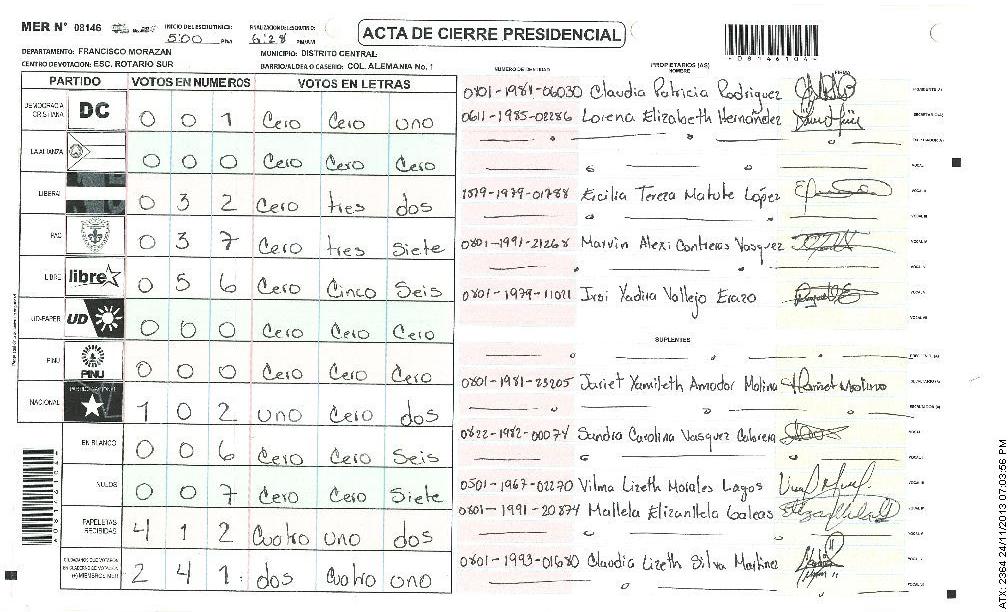 MER N° 08146 INICIO DEL ESCRUTINIO: 5:00 PM FINALIZACION DEL ESCRUTINIO: 6:28 PM/AM
ACTA DE CIERRE PRESIDENCIAL
08146104
DEPARTAMENTO: FRANCISCO MORAZAN MUNICIPIO: DISTRITO CENTRAL
CENTRO DE VOTACION: ESC. ROTARIO SUR BARRIO/ALDEA O CASERIO: COL. ALEMANIA No. 1
PARTIDO VOTOS EN NUMEROS VOTOS EN LETRAS
DEMOCRACIA CRISTIANA DC 0 0 1 Cero Cero uno
LA ALIANZA 0 0 0 Cero Cero Cero
LIBERAL 0 3 2 Cero tres dos
PAC 0 3 7 Cero tres Siete
LIBRE libre 0 5 6 Cero Cinco Seis
UD-FAPER UD 0 0 0 Cero Cero Cero
PINU PINU 0 0 0 Cero Cero Cero
NACIONAL 1 0 2 uno Cero dos
EN BLANCO 0 0 6 Cero Cero Seis
NULOS 0 0 7 Cero Cero Siete
PAPELETAS RECIBIDAS 4 1 2 Cuatro uno dos
2 4 1 dos Cuatro uno
NUMERO DE IDENTIDAD PROPIETARIOS (AS) NOMBRE FIRMA
0801-1981-06030 Claudia Patricia Rodriguez
0611-1985-02286 Lorena Elizabeth Hernández
1519-1979-01788 Ercilia Tereza Matute López
0801-1991-21268 Marvin Alexi Contreras Vasquez
0801-1979-11021 Irsi Yadira Vallejo Erazo
SUPLENTES
0801-1981-23205 Juriet Yamileth Amador Molina
0822-1982-00074 Sandra Carolina Vasquez Cabrera
0501-1967-02270 Vilma Lizeth Morales Lagos
0801-1991-20874 Mallela Elizanllela Galeas
0801-1993-01680 Claudia Lizeth Silva Martinez
ATX: 2364 24/11/2013 07:03:56 PM